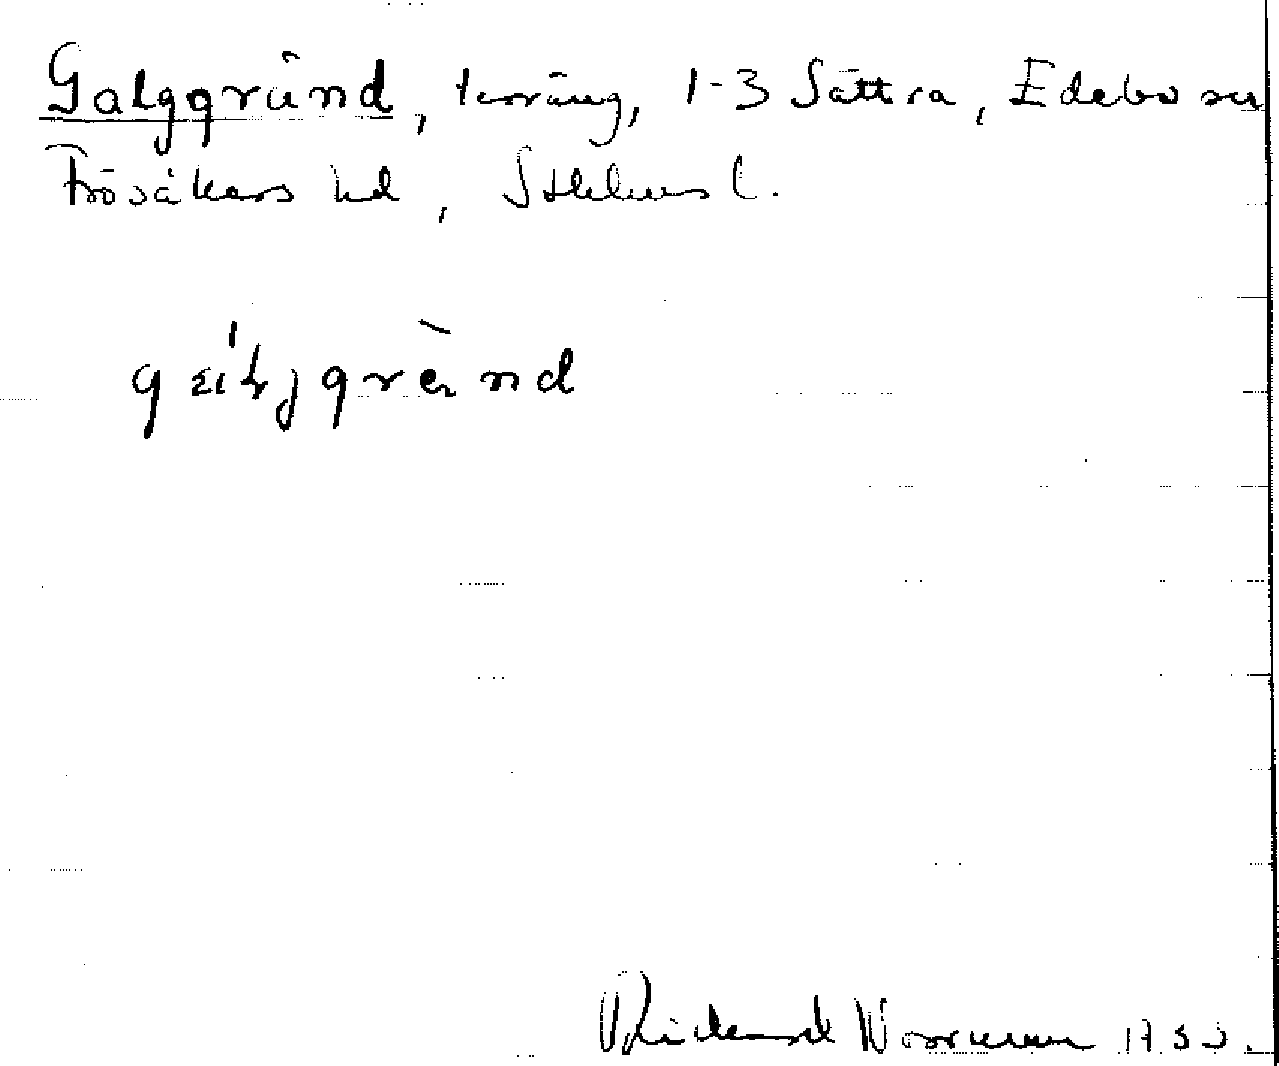 Galggränd, terräng, 1-3 Sättra, Edebo sn
Frösåkers hd, Sthlms l.
Rickard Norrman